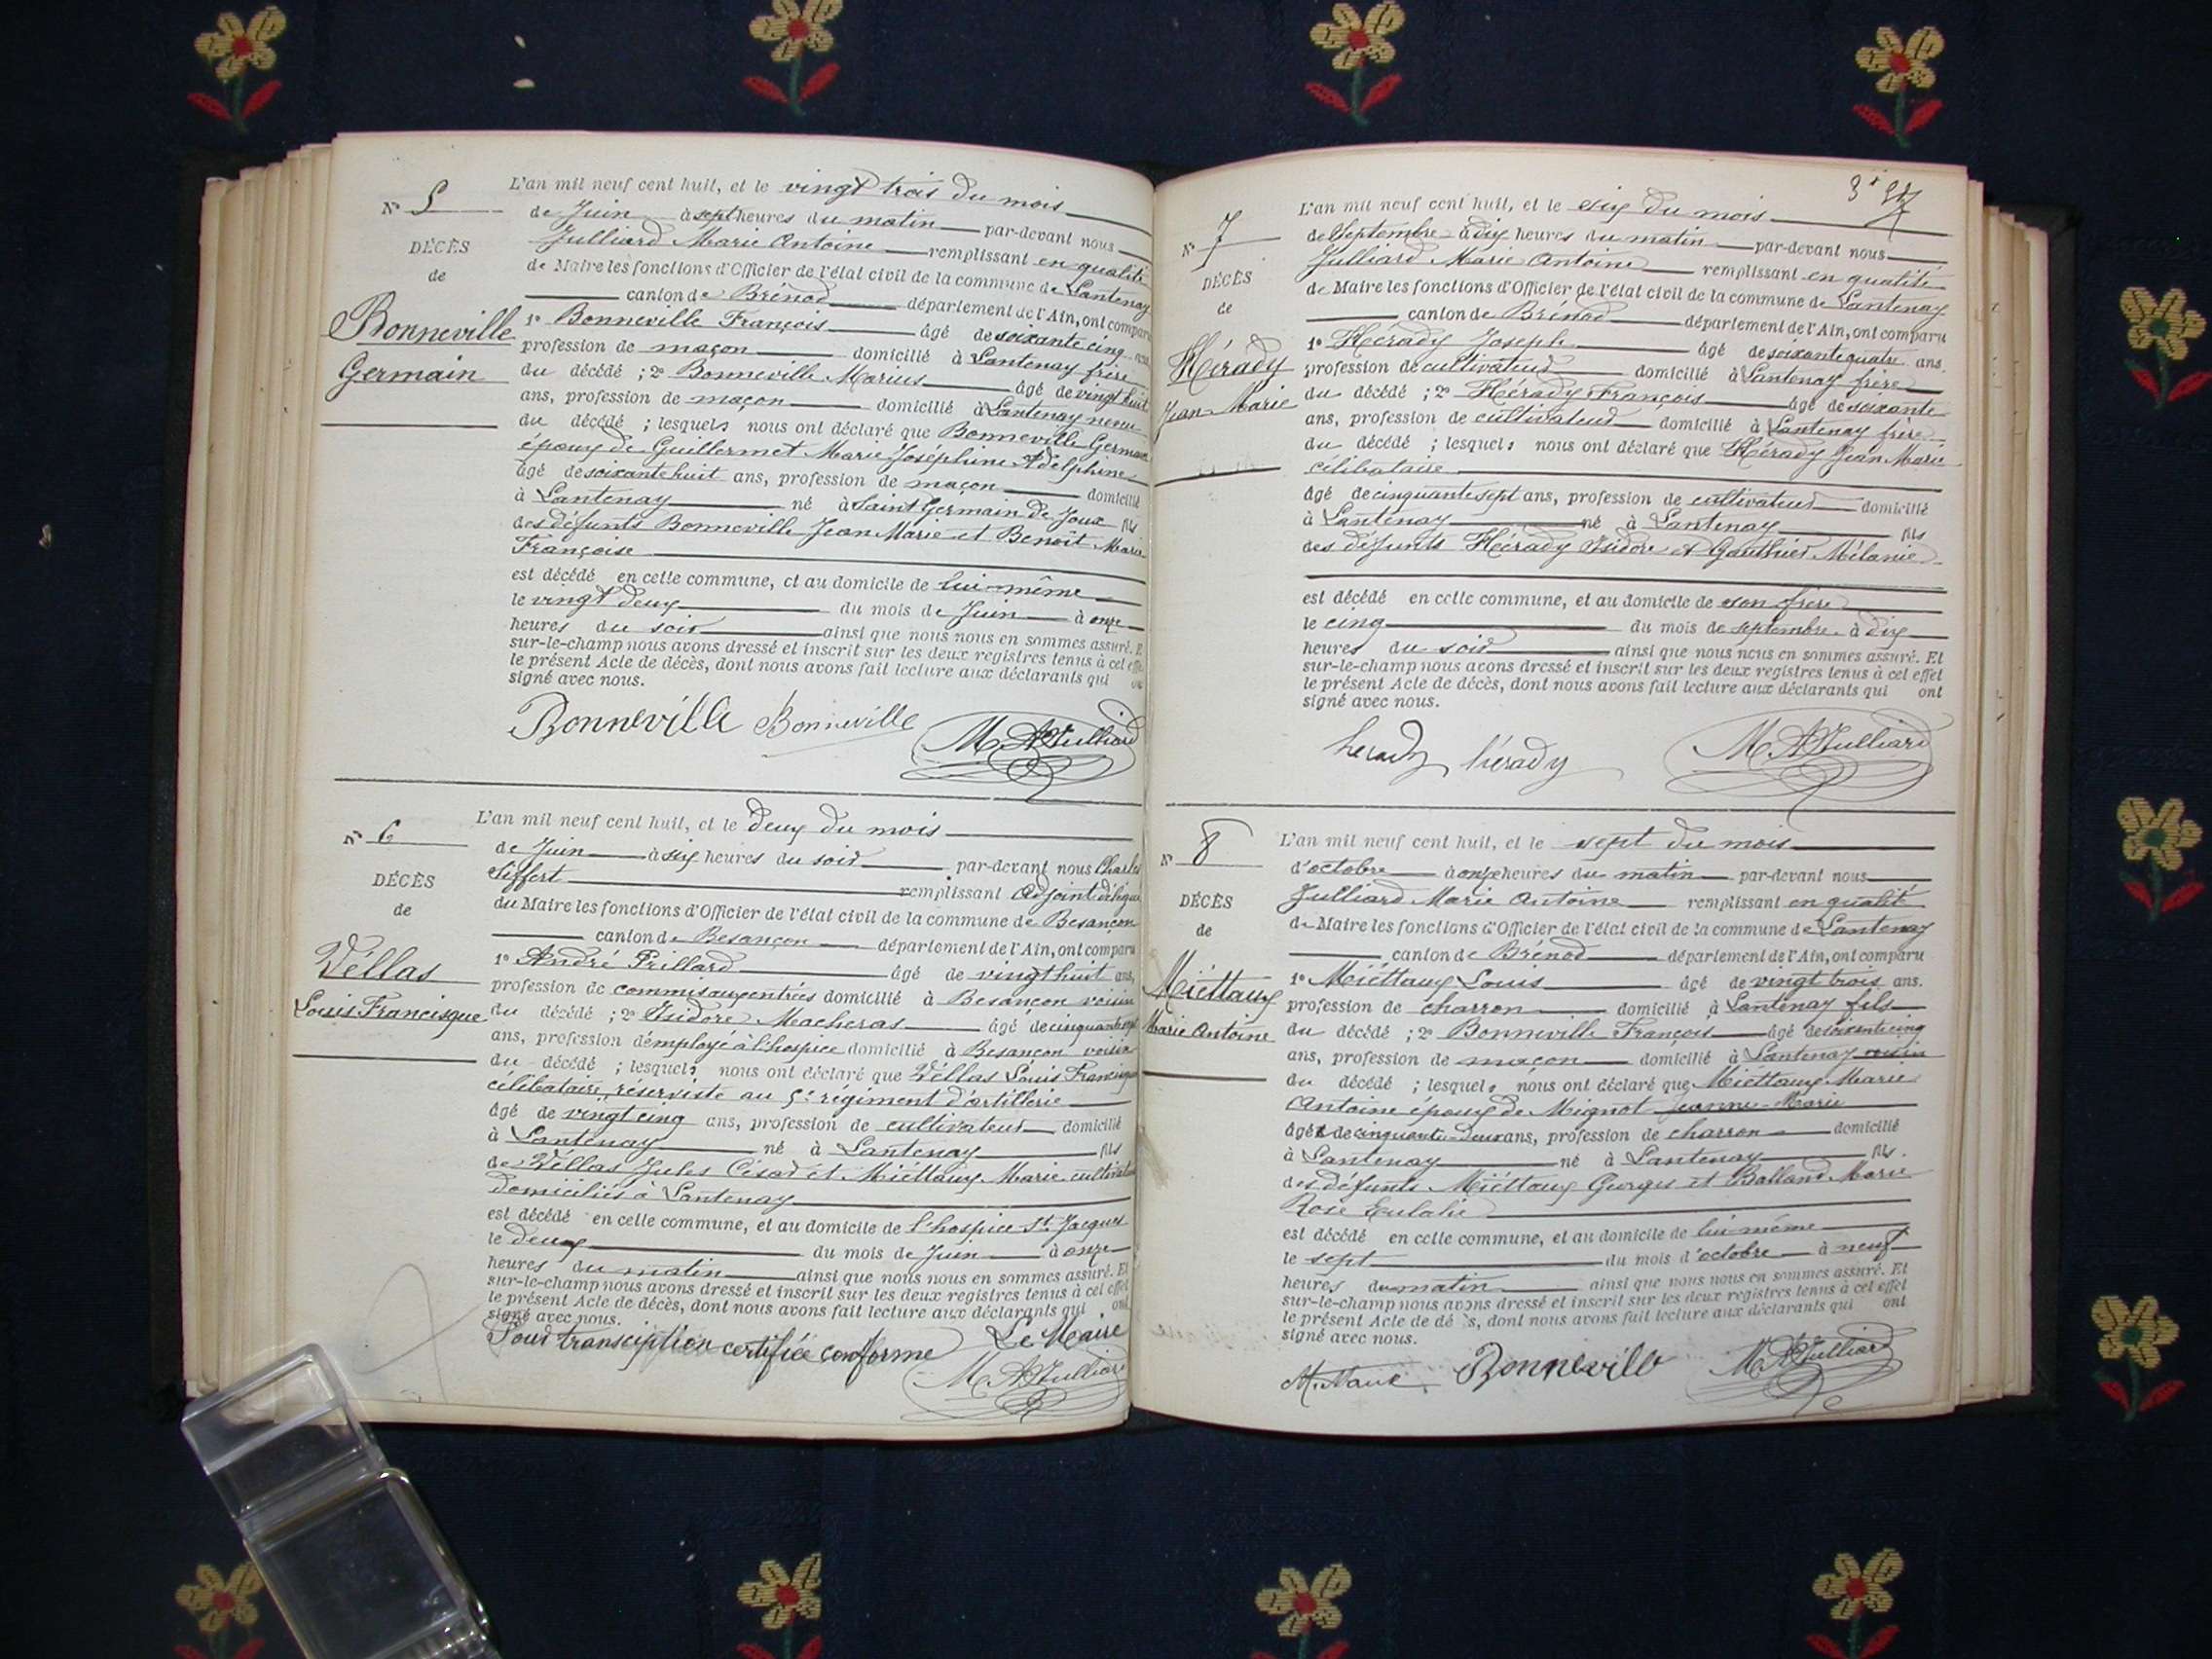 N° 5
DÉCÈS
de
Bonneville
Germain
L'an mil neuf cent huit, et le vingt trois du mois
de Juin à sept heures du matin par-devant nous
Julliard Marie Antoine remplissant en qualité
de Maire les fonctions d'Officier de l'état civil de la commune de Lantenay
canton de Brénod département de l'Ain, ont comparu
1° Bonneville François âgé de soixante cinq ans
profession de maçon domicilié à Lantenay frère
du décédé ; 2° Bonneville Marius âgé de vingt huit
ans, profession de maçon domicilié à Lantenay neveu
du décédé ; lesquels nous ont déclaré que Bonneville Germain
époux de Guillermet Marie Joséphine Adelphine
âgé de soixante huit ans, profession de maçon domicilié
à Lantenay né à Saint Germain de Joux fils
des défunts Bonneville Jean Marie et Benoit Marie
Françoise
est décédé en cette commune, et au domicile de lui-même
le vingt deux du mois de Juin à onze
heures du soir ainsi que nous nous en sommes assuré. E
sur-le-champ nous avons dressé et inscrit sur les deux registres tenus à cet effe
le présent Acte de décès, dont nous avons fait lecture aux déclarants qui on
signé avec nous.
Bonneville Bonneville M A Julliard
N° 6
DÉCÈS
de
Véllas
Louis Francisque
L'an mil neuf cent huit, et le deux du mois
de Juin à six heures du soir par-devant nous Charles
Siffert remplissant Adjoint délégué
du Maire les fonctions d'Officier de l'état civil de la commune de Besançon
canton de Besançon département de l'Ain, ont comparu
1° André Prillard âgé de vingt huit ans,
profession de commis aux entrées domicilié à Besançon voisin
du décédé ; 2° Isidore Macheras âgé de cinquante sept
ans, profession d'employé à l'hospice domicilié à Besançon voisin
du décédé ; lesquels nous ont déclaré que Véllas Louis Francisque
célibataire, réserviste au 5e régiment d'artillerie
âgé de vingt cinq ans, profession de cultivateur domicilié
à Lantenay né à Lantenay fils
de Véllas Jules César et Miéttaux Marie cultivateurs
domiciliés à Lantenay
est décédé en cette commune, et au domicile de l'hospice St Jacques
le deux du mois de Juin à onze
heures du matin ainsi que nous nous en sommes assuré. Et
sur-le-champ nous avons dressé et inscrit sur les deux registres tenus à cet effet
le présent Acte de décès, dont nous avons fait lecture aux déclarants qui ont
signé avec nous.
Pour transcription certifiée conforme Le Maire
M A Julliard
N° 7
DÉCÈS
de
Hérady
Jean-Marie
L'an mil neuf cent huit, et le six du mois
de Septembre à dix heures du matin par-devant nous
Julliard Marie Antoine remplissant en qualité
de Maire les fonctions d'Officier de l'état civil de la commune de Lantenay
canton de Brénod département de l'Ain, ont comparu
1° Hérady Joseph âgé de soixante quatre ans.
profession de cultivateur domicilié à Lantenay frère
du décédé ; 2° Hérady François âgé de soixante
ans, profession de cultivateur domicilié à Lantenay frère
du décédé ; lesquels nous ont déclaré que Hérady Jean Marie
célibataire
âgé de cinquante sept ans, profession de cultivateur domicilié
à Lantenay né à Lantenay fils
des défunts Hérady Isidore et Gauthier Mélanie
est décédé en cette commune, et au domicile de son frère
le cinq du mois de septembre à dix
heures du soir ainsi que nous nous en sommes assuré. Et
sur-le-champ nous avons dressé et inscrit sur les deux registres tenus à cet effet
le présent Acte de décès, dont nous avons fait lecture aux déclarants qui ont
signé avec nous.
herady hérady M A Julliard
N° 8
DÉCÈS
de
Miéttaux
Marie Antoine
L'an mil neuf cent huit, et le sept du mois
d'octobre à onze heures du matin par-devant nous
Julliard Marie Antoine remplissant en qualité
de Maire les fonctions d'Officier de l'état civil de la commune de Lantenay
canton de Brénod département de l'Ain, ont comparu
1° Miéttaux Louis âgé de vingt trois ans.
profession de charron domicilié à Lantenay fils
du décédé ; 2° Bonneville François âgé de soixante cinq
ans, profession de maçon domicilié à Lantenay voisin
du décédé ; lesquels nous ont déclaré que Miéttaux Marie
Antoine époux de Mignot Jeanne-Marie
âgé de cinquante-deux ans, profession de charron domicilié
à Lantenay né à Lantenay fils.
des défunts Miéttaux Georges et Balland Marie
Rose Eulalie
est décédé en cette commune, et au domicile de lui même
le sept du mois d'octobre à neuf
heures du matin ainsi que nous nous en sommes assuré. Et
sur-le-champ nous avons dressé et inscrit sur les deux registres tenus à cet effet
le présent Acte de dé s, dont nous avons fait lecture aux déclarants qui ont
signé avec nous.
Bonneville M A Julliard